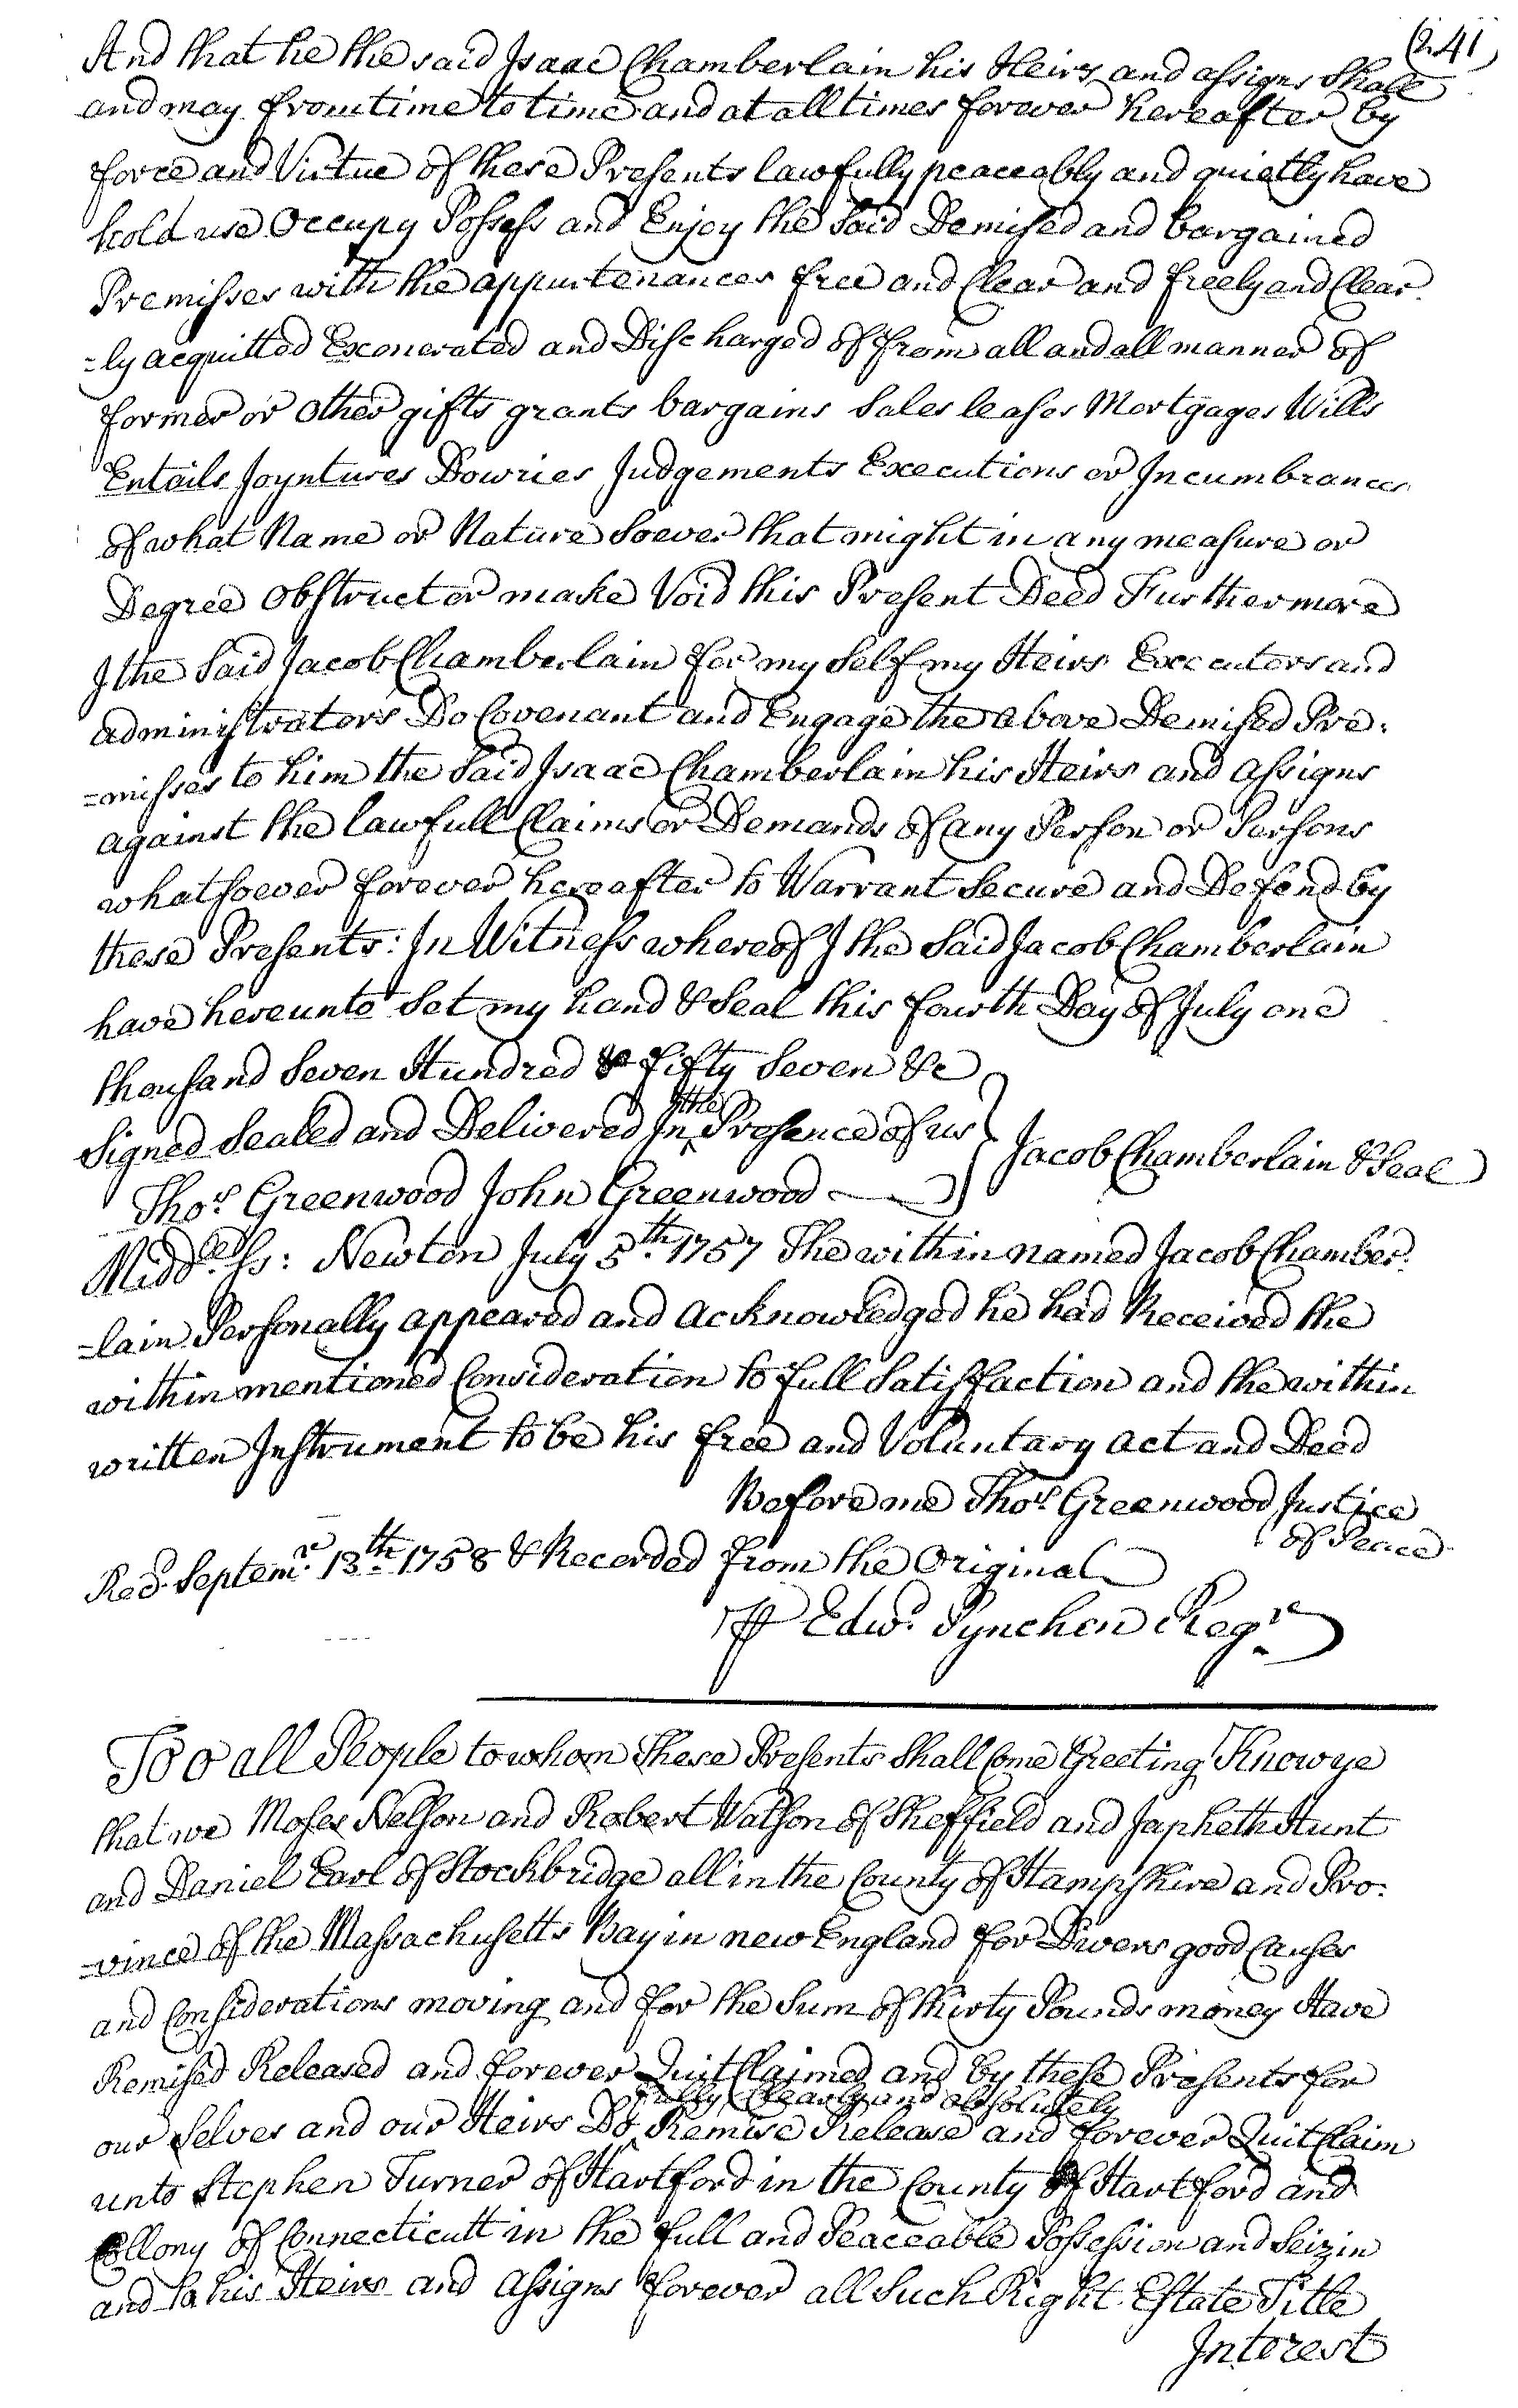 (241)
And that he the said Isaac Chamberlain his Heirs and assigns Shall
and may from time to time and at all times forever hereafter by
force and Virtue of these Presents lawfully peaceably and quietly have
hold use Occupy Possess and Enjoy the Said Demised and bargained
Premisses with the appurtenances free and Clear and freely and Clear
=ly acquitted Exonerated and Discharged of from all and all manner of
former or other gifts grants bargains Sales leases Mortgages Wills
Entails Joyntures Dowries Judgements Executions or Incumbrances
of what Name or Nature Soever that might in any measure or
Degree Obstruct or make Void this Present Deed Furthermore
I the Said Jacob Chamberlain for my Self my Heirs Executors and
administrators Do Covenant and Engage the above Demised Pre:
=misses to him the Said Isaac Chamberlain his Heirs and assigns
against the lawfull Claims or Demands of any Person or Persons
whatsoever forever hereafter to Warrant Secure and Defend by
these Presents: In Witness whereof I the Said Jacob Chamberlain
have hereunto Set my hand & Seal this fourth Day of July one
thousand Seven Hundred & fifty Seven &c
Signed Sealed and Delivered In the Presence of us } Jacob Chamberlain & Seal
Thos. Greenwood John Greenwood
Midd.x Ss: Newton July 5.th 1757 The within named Jacob Chamber:
=lain Personally appeared and acknowledged he had Received the
within mentioned Consideration to full Satisfaction and the within
written Instrument to be his free and Voluntary act and Deed
Before me Thos. Greenwood Justice
of Peace
Recd. Septemr. 13.th 1758 & Recorded from the Original
⅌ Edwd. Pynchon Regr.
Too all People to whom These Presents Shall Come Greeting Know ye
that we Moses Nelson and Robert Watson of Sheffield and Japheth Hunt
and Daniel Earl of Stockbridge all in the County of Hampshire and Pro:
=vince of the Massachusetts Bay in new England for Divers good Causes
and Considerations moving and for the Sum of thirty Pounds money Have
Remised Released and forever Quit Claimed and by these Presents for
fully Clearly and absolutely
our Selves and our Heirs Do Remise Release and forever Quit Claim
unto Stephen Turner of Hartford in the County of Hartford and
Collony of Connecticutt in the full and Peaceable Possession and Seizin
and to his Heirs and assigns forever all Such Right Estate Title
Interest